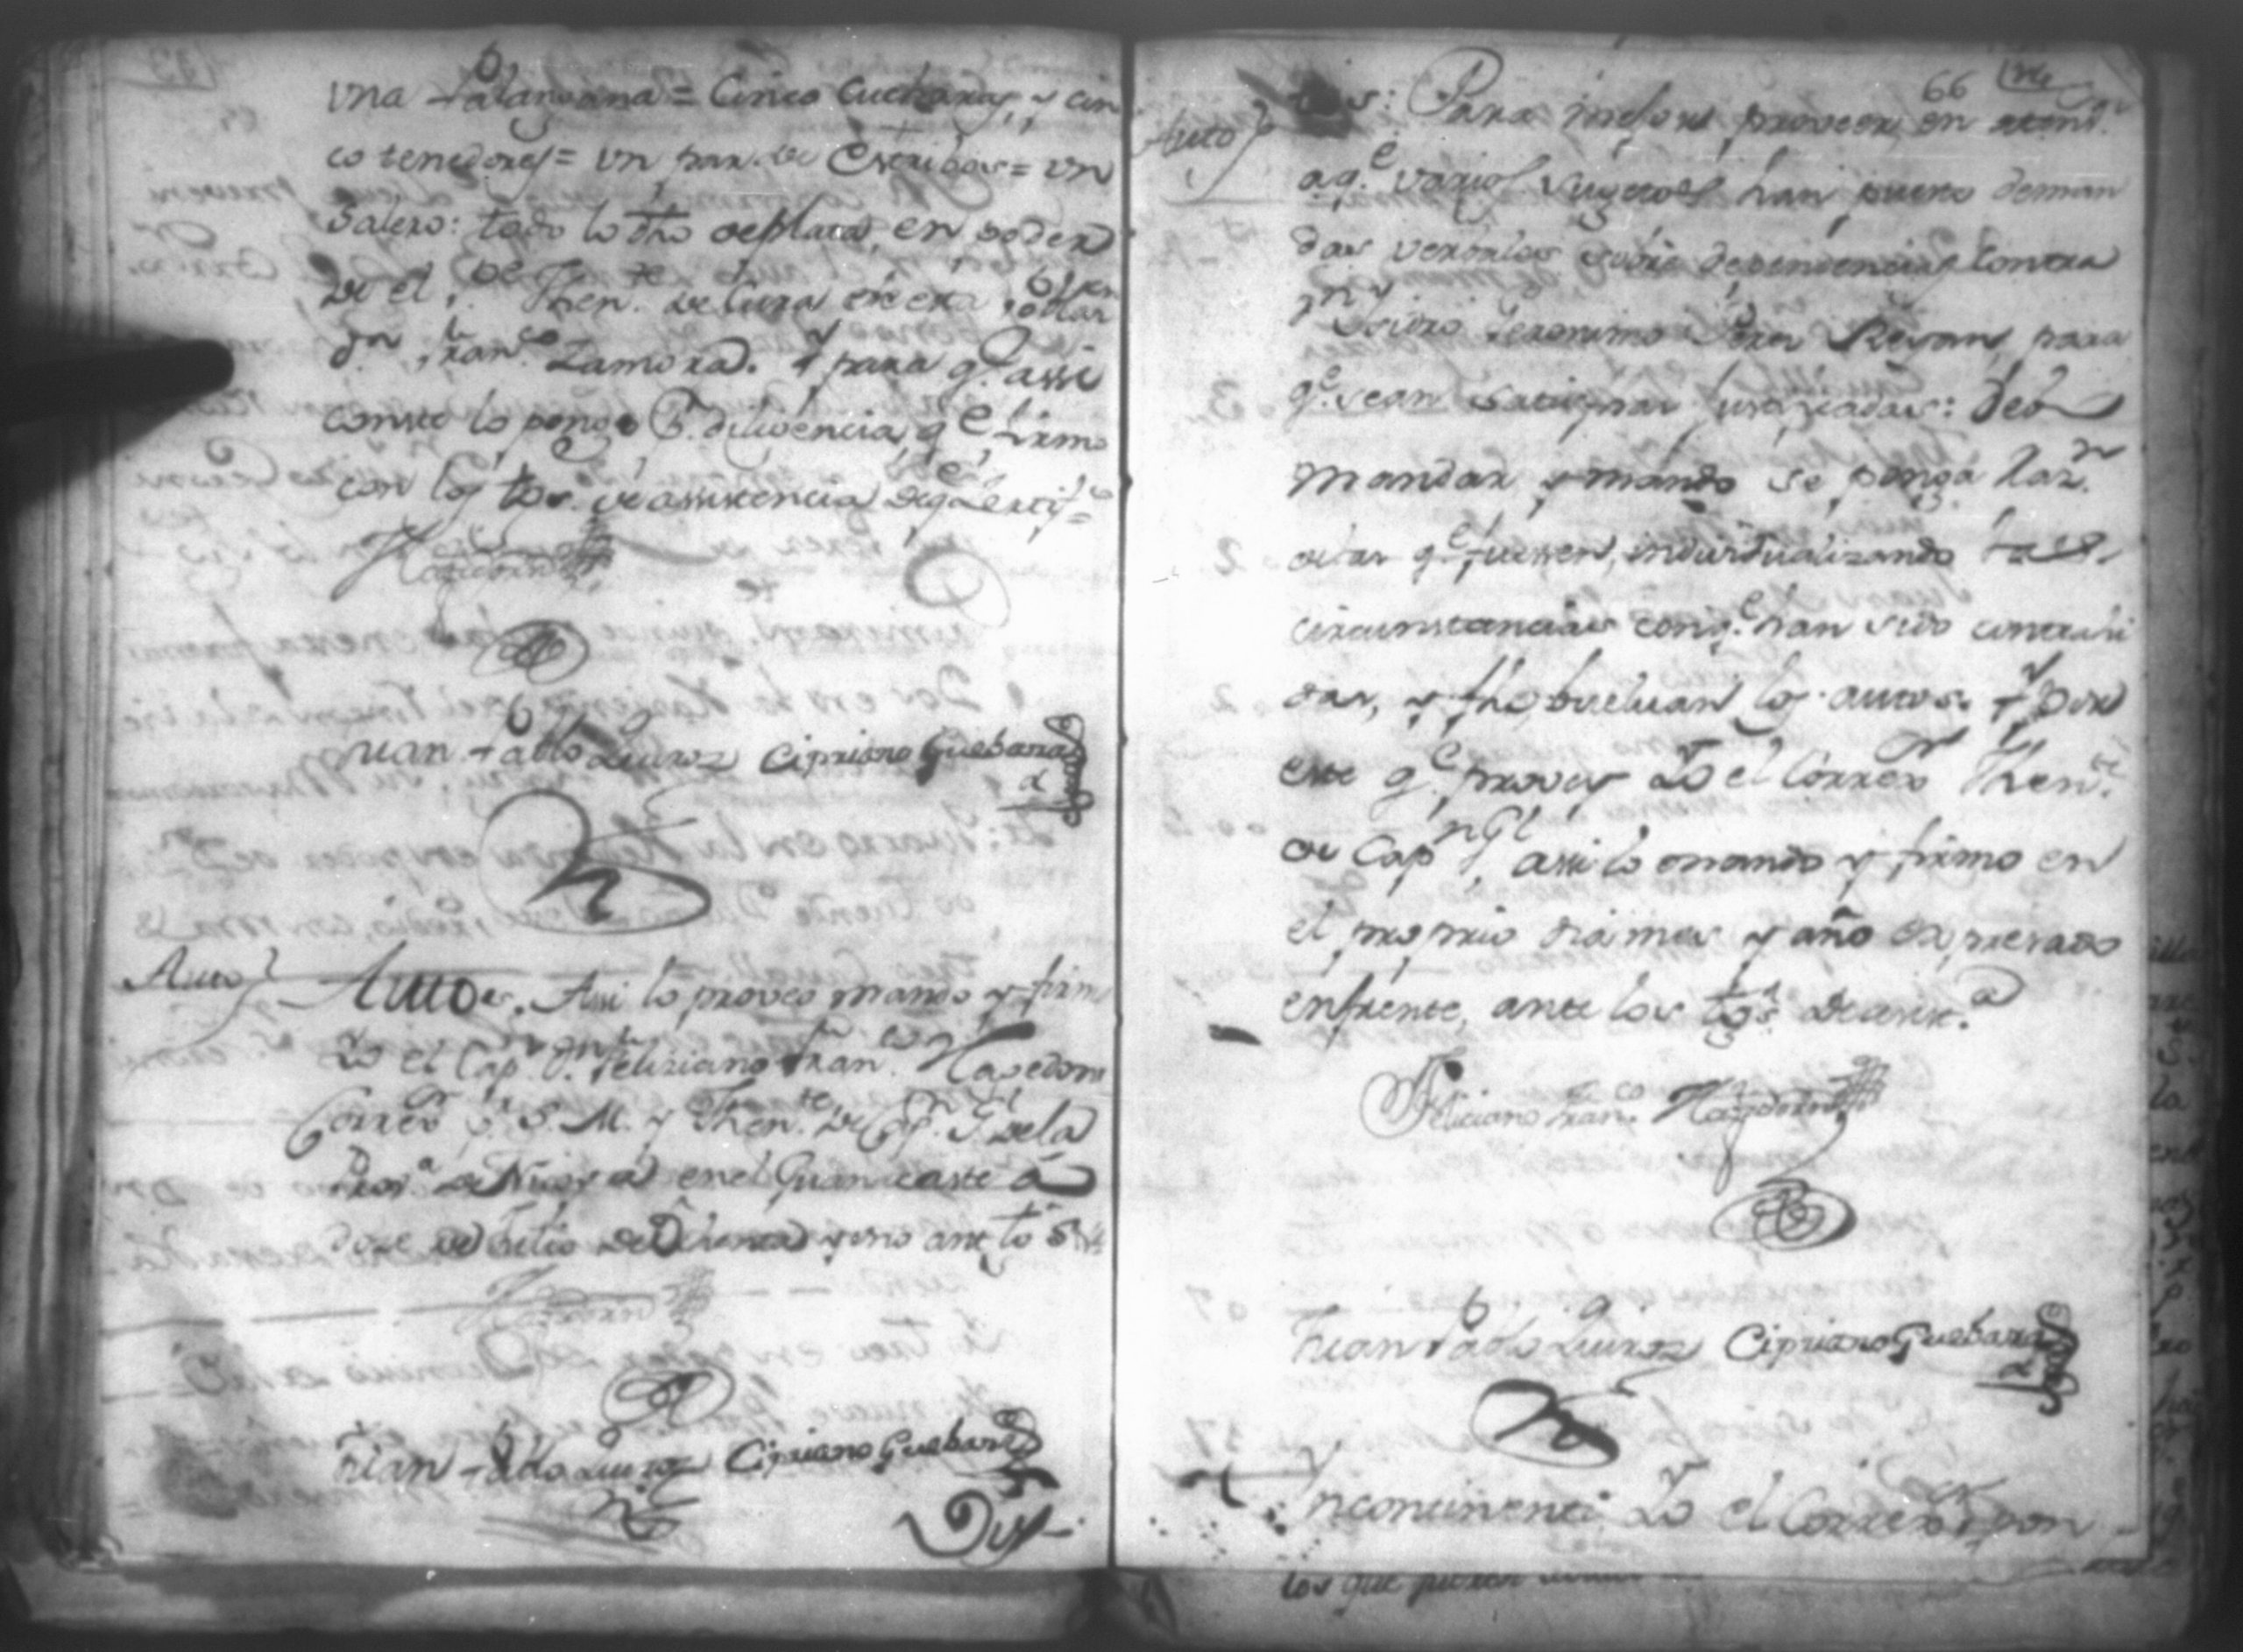 una Palangana = Cinco Cucharas, y cin
co tenedores = un par de Estribos = un
Salero: todo lo dho de plata, en poder
de el Then.te de Cura de esta
Dn Fran.co Zamora. Y para q.e assi
conste lo pongo P. diligencia, q.e firmo
con los tgos. de assistencia deq.e Certif.co
Hagedorn
Juan Pablo Quiroz Cipriano Guebara
Auto
Autos. Assi lo proveo mando y firmo
Yo el Cap.n D.n Feliziano Fran.co Hagedorn
Correx.or P. S. M. y Then.te de Cap.n G.l dela
Prov.a de Nicoya en el Guanacaste a
doze de
Hagedorn
Juan Pablo Quiroz Cipriano Guebara
66
Auto
tos: Para mejor proveer en atenc.on
aq.e varios sugetos han puesto deman
das verbales sobre dependencias contra
D.n Isidro Geronimo para
q.e sean satisfhas justificadas: Devo
mandar y mando se ponga raz.n
de las q.e fuessen, individualizando las
circunstancias conq.e han sido contrahi
das, y fho buelvan los autos. Y por
este q.e provey Yo el Correx.or Then.te
de Cap.n G.l, assi lo mando y firmo en
el proprio dia mes y año expresado
enfrente, ante los tgos. de assis.a
Feliciano Fran.co Hagedorn
Juan Pablo Quiroz Cipriano Guebara
Yncontinenti Yo el Correx.or
los que